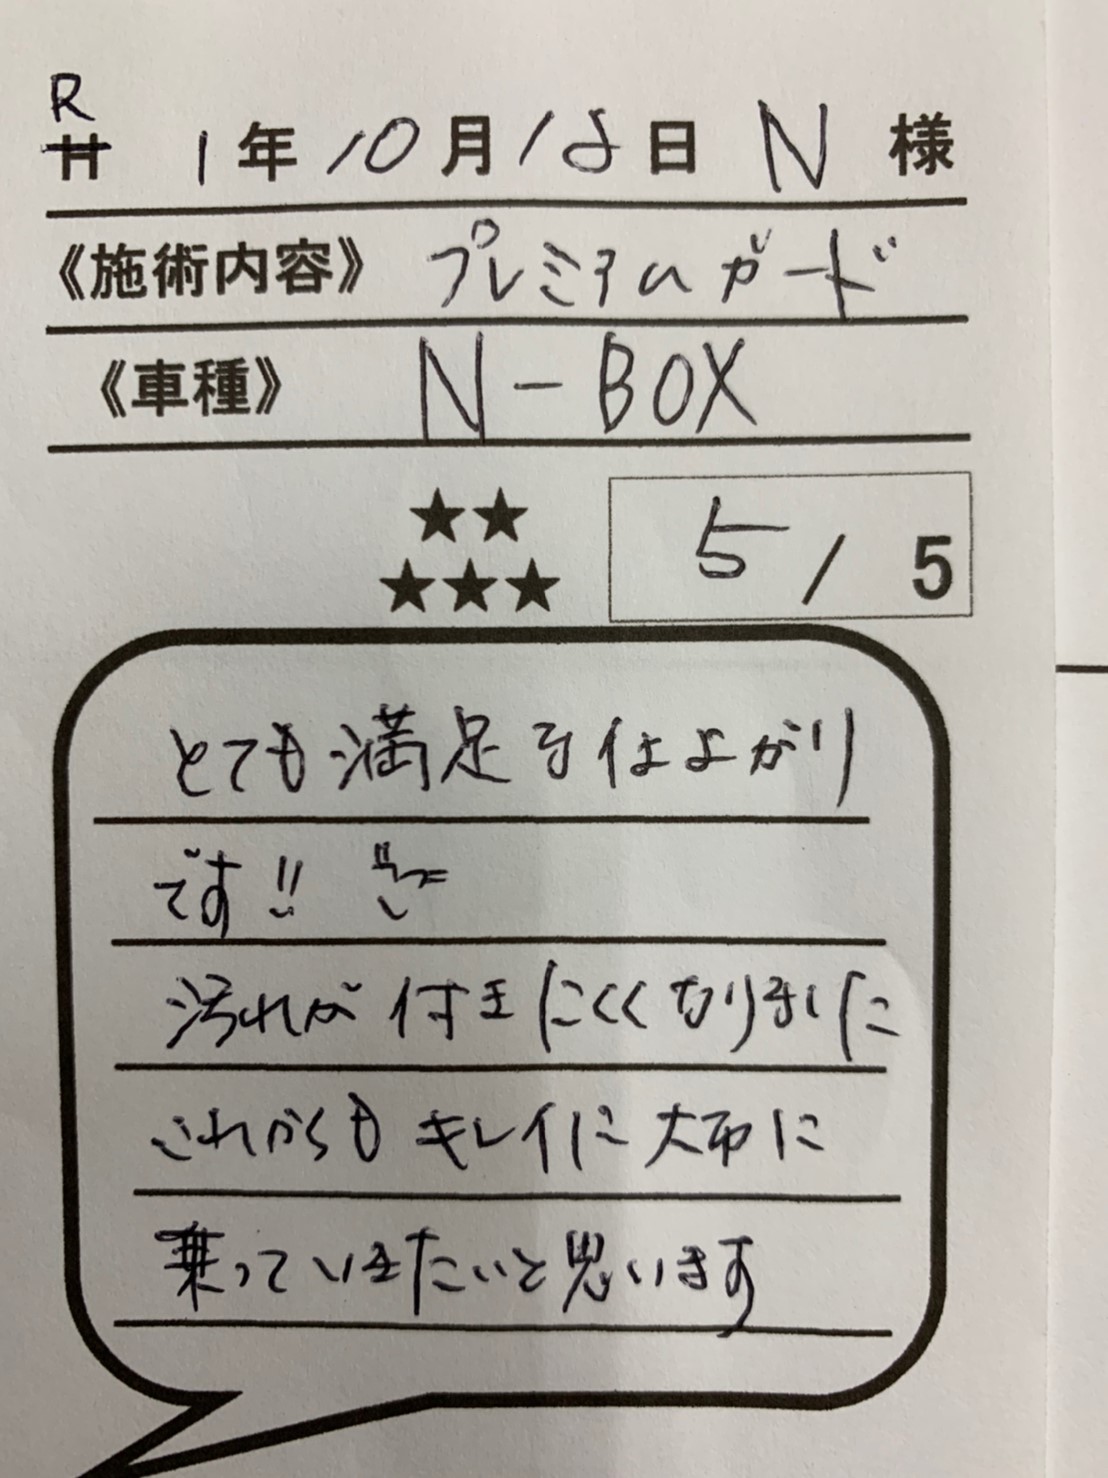 R
H 1年10月18日 N 様
《施術内容》 プレミアムガード
《車種》 N-BOX
★★
★★★ 5/5
とても満足な仕上がり
です!!
汚れが付きにくくなりました
これからもキレイに大切に
乗っていきたいと思います